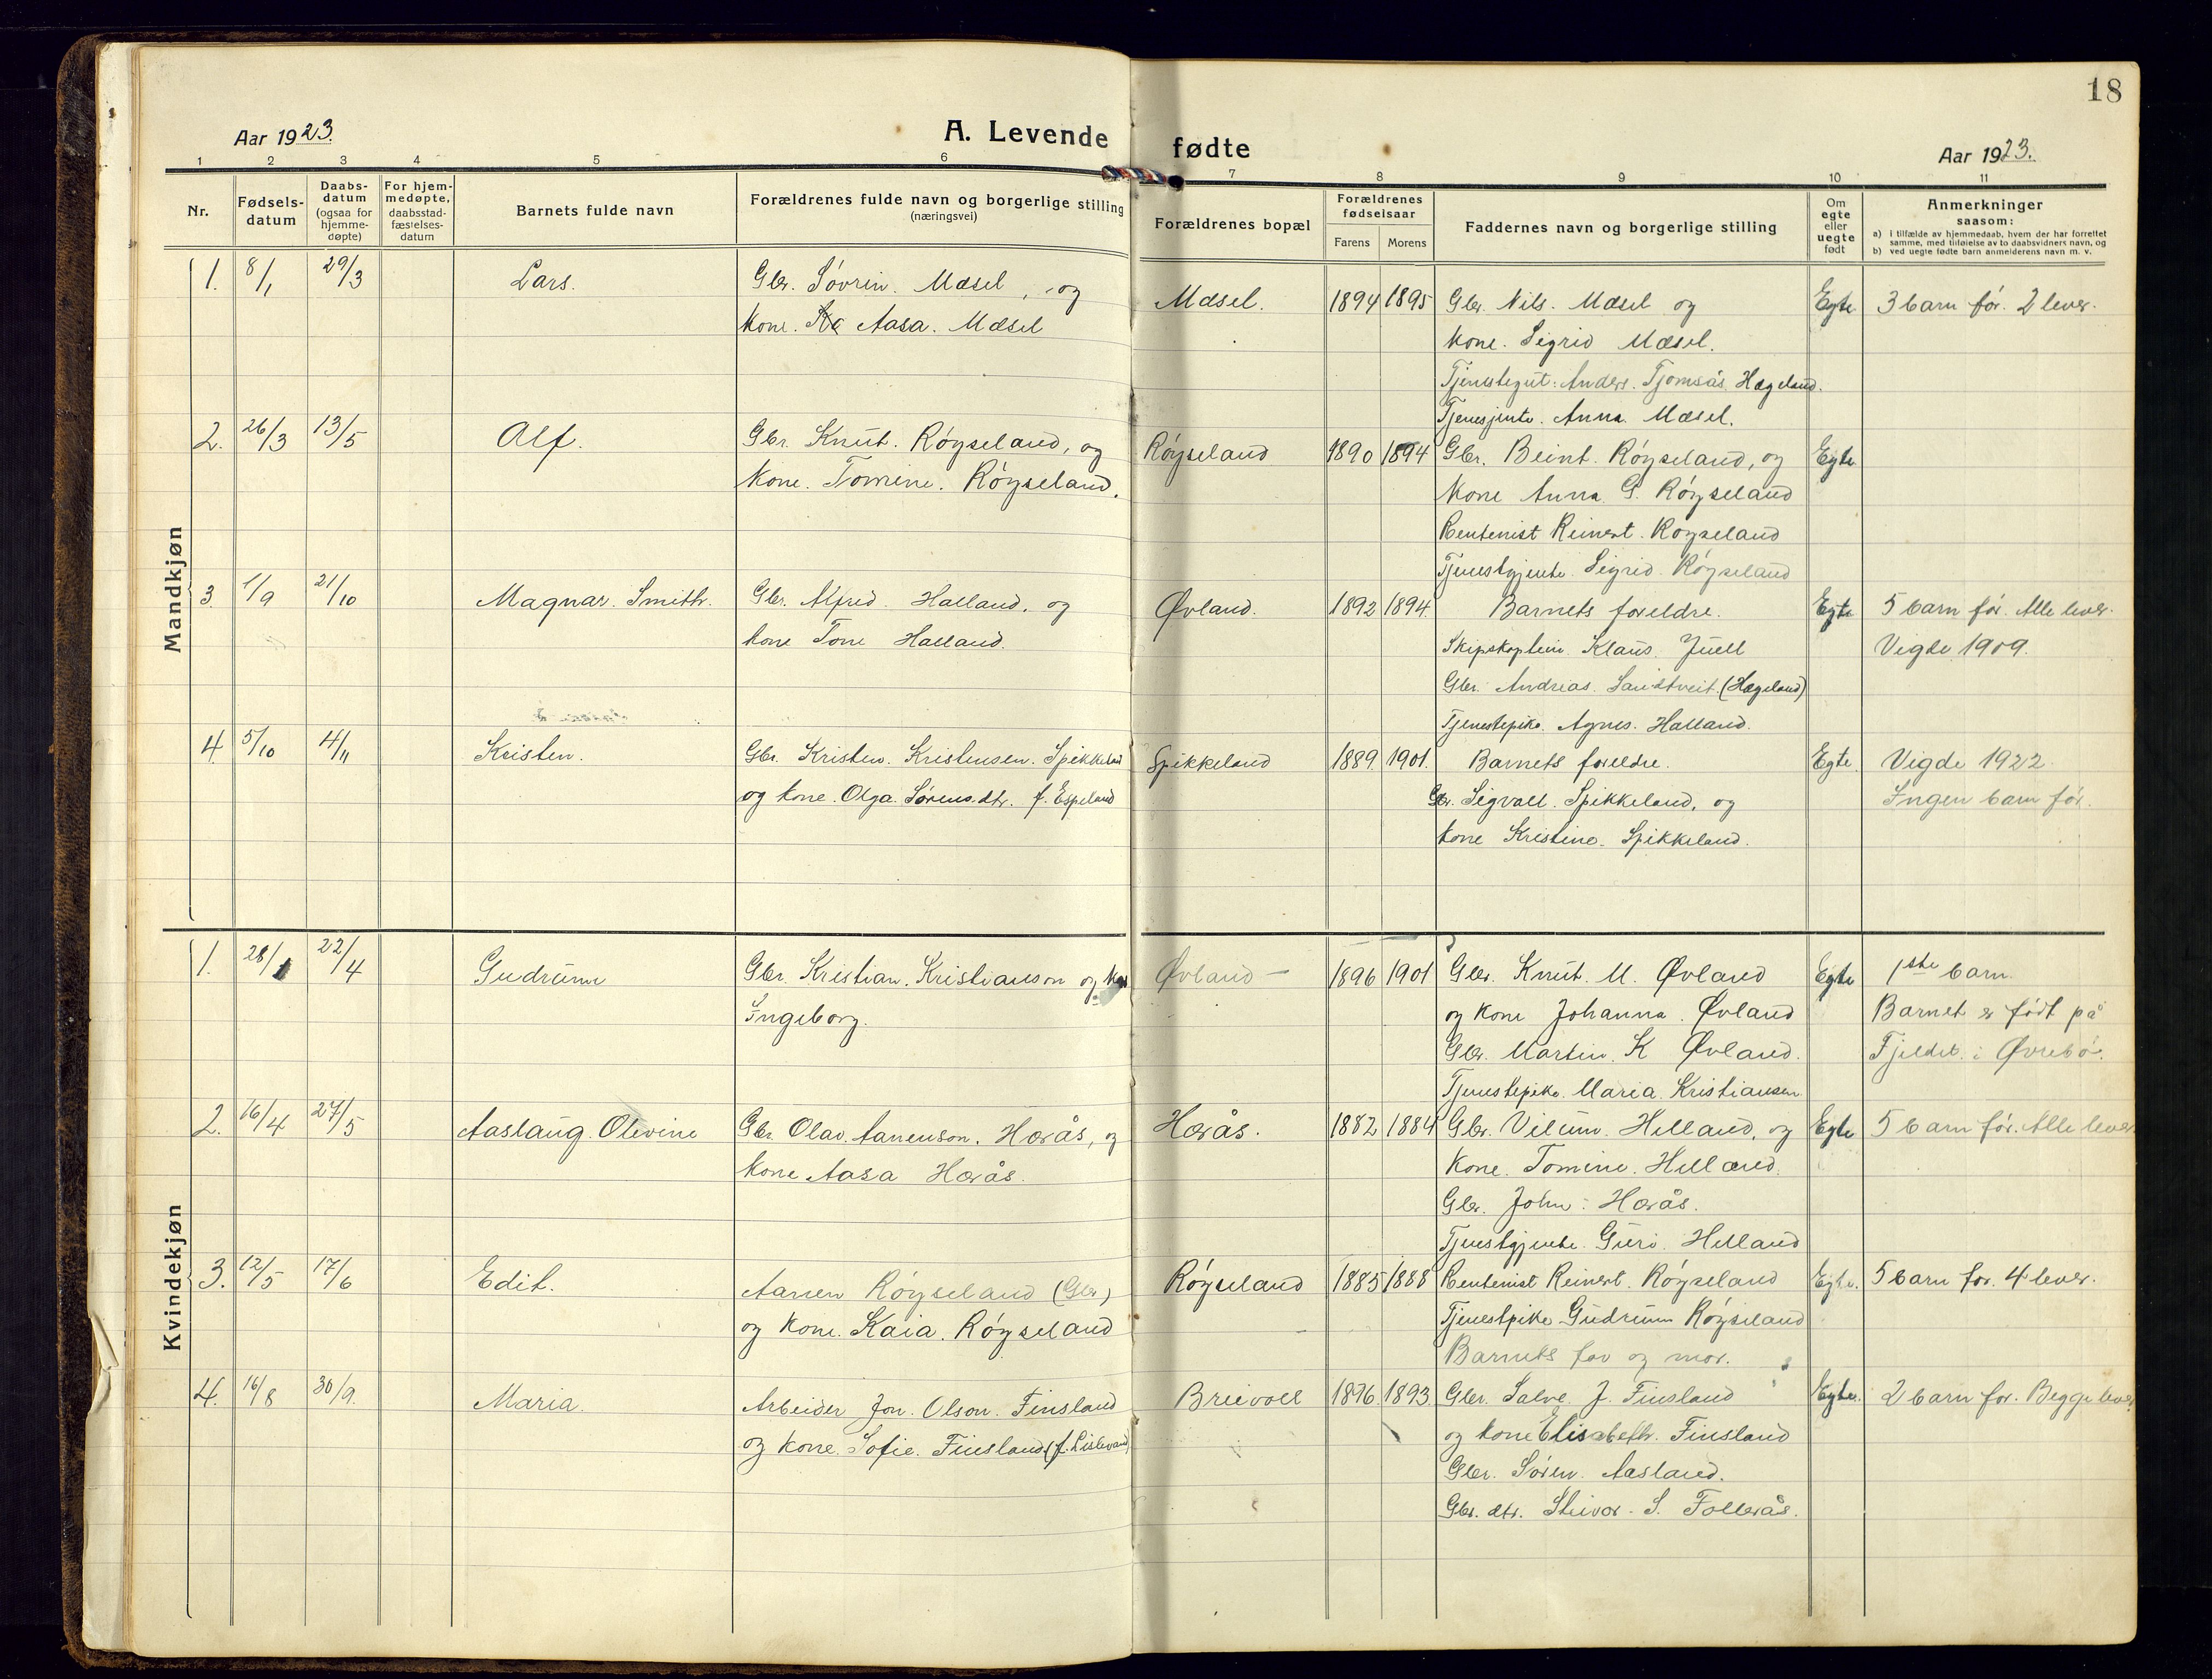 18
Aar 1923.
A. Levende fødte
Aar 1923.
1 2 3 4 5 6 7 8 9 10 11
Nr.
Fødsels-
datum
Daabs-
datum
(ogsaa for
hjemme-
døpte)
For hjem-
medøpte,
daabsstad-
fæstelses-
datum
Barnets fulde navn
Forældrenes fulde navn og borgerlige stilling
(næringsvei)
Forældrenes bopæl
Forældrenes
fødselsaar
Farens Morens
Faddernes navn og borgerlige stilling
Om
egte
eller
uegte
født
Anmerkninger
saasom:
a) i tilfælde av hjemmedaab, hvem der har forrettet
samme, med tilføielse av to daabsvidners navn, og
b) ved uegte fødte barn anmelderens navn m. v.
Mandkjøn
1. 8/1 29/3 Lars. Gbr. Søvrin. Mæsel, og Mæsel. 1894 1895 Gbr. Nils. Mæsel og Egte 3 barn før. 2 lever.
kone. Aasa. Mæsel kone. Sigrid Mæsel.
Tjenestegut: Anders. Tjomsås. Hægeland.
Tjenesjente. Anna. Mæsel.
2. 26/3 13/5 Alf. Gbr. Knut. Røyseland, og Røyseland 1890 1894 Gbr. Beint. Røyseland, og Egte
kone. Tomine. Røyseland. kone Anna G. Røyseland
Rentenist Reinert. Røyseland
Tjenestgjente. Sigrid. Røyseland
3. 1/9 21/10 Magnar. Smith. Gbr. Alfred. Halland. og Øvland. 1892 1894. Barnets foreldre. Egte 5 barn før. Alle lever.
kone Tone Halland. Skipskaptein. Klaus. Juell Vigde 1909.
Gbr. Andreas. Sandtveit. (Hægeland)
Tjenestepike. Agnes. Halland.
4. 5/10 4/11 Kristen. Gbr. Kristen. Kristensen. Spikkeland Spikkeland 1889. 1901. Barnets foreldre. Egte. Vigde 1922.
og kone. Olga. Sørens.dtr. f. Espeland Gbr. Sigvall. Spikkeland, og Ingen barn før.
kone Kristine. Spikkeland.
Kvindekjøn
1. 28/1 22/4 Gudrun Gbr. Kristian. Kristianson og kone Øvland 1896 1901 Gbr. Knut. M. Øvland Egte 1ste barn.
Ingeborg. og kone Johanna. Øvland Barnet er født på
Gbr. Martin. K Øvland. Fjeldet. i Øvrebø.
Tjenestepike. Maria. Kristiansen.
2. 16/4 27/5 Aaslaug. Olevine Gbr. Olav. Aanenson. Høråas, og Høråas. 1882 1884 Gbr. Vilum. Helland, og Egte 5 barn før. Alle lever.
kone Aasa Høråas. kone. Tomine. Helland.
Gbr. John: Høråas.
Tjenestgjente. Guro. Helland
3. 12/5 17/6 Edit. Aanen Røyseland (Gbr) Røyseland 1885 1888 Rentenist Reinert. Røyseland Egte. 5 barn før. 4 lever.
og kone. Kaia. Røyseland Tjenestpike Gudrun Røyseland
Barnets far og mor.
4. 16/8 30/9. Maria. Arbeider Jon. Olson. Finsland Breivoll 1896. 1893. Gbr. Salve. J. Finsland Egte. 2 barn før. Begge lever
og kone. Sofie. Finsland (f. Lislevand) og kone Elisabeth. Finsland
Gbr. Søren. Aasland.
Gbr. dtr. S. Follerås.